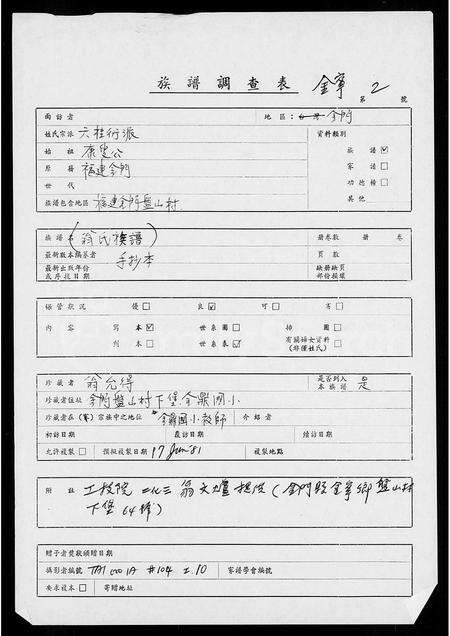 族譜調查表 金寧 2
第 號
面訪者 地區：台灣 金門
姓氏宗派 六桂衍派 資料類別
始祖 康叟公 族譜☑
原籍 福建金門 家譜□
世代 功德榜□
族譜包含地區 福建金門盤山村 其他
族譜名 (翁氏族譜) 册卷數 册 卷
最新版本編纂者 手抄本 頁數
最新出版年份 缺册缺頁
或序投日期 部份損壞
保管狀況 優□ 良☑ 可□ 劣□
內容 寫本☑ 世系圖□ 插圖□
刊本□ 世系表☑ 有關婦女資料□
(非僅姓氏)
珍藏者 翁允得 是否列入
本族譜 是
珍藏者住址 金門盤山村下堡金鼎國小
珍藏者在(家)宗族中之地位 金鼎國小教師 介紹者
初訪日期 底訪日期 續訪日期
允許複製□ 擬複製日期 17 Jun '81 複製地點
附註 工技院 翁文爐 提供(金門縣金寧鄉盤山村
下堡64號)
贈予者獎狀頒贈日期
攝影者編號 TAI 001A #104 I.10 家譜學會編號
要求複本□ 寄贈地址